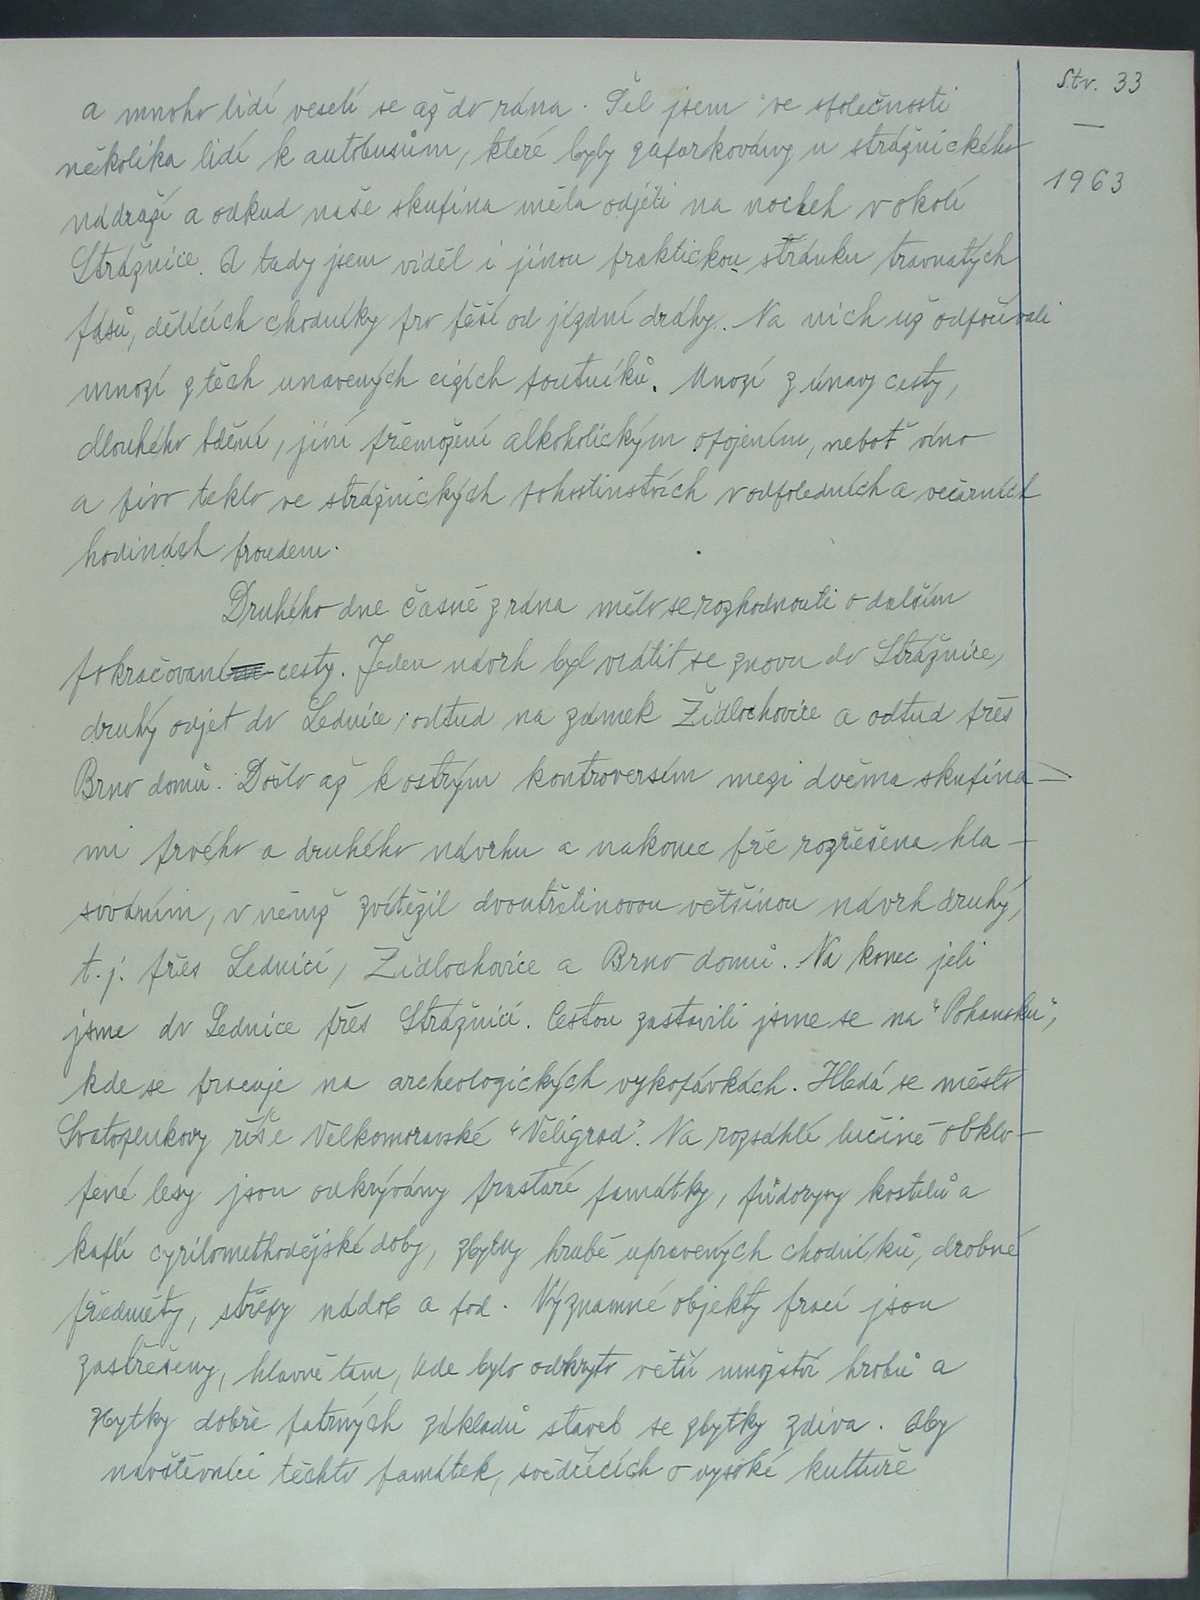 Str. 33
—
1963
a mnoho lidí veselí se až do rána. Šel jsem ve společnosti
několika lidí k autobusům, které byly zaparkovány u strážnického
nádraží a odkud naše skupina měla odjeti na nocleh v okolí
Strážnice. A tady jsem viděl i jinou praktickou stránku travnatých
pásů, dělících chodníky pro pěší od jízdní dráhy. Na nich už odpočívali
mnozí z těch unavených cizích poutníků. Mnozí z únavy cesty,
dlouhého bdění, jiní přemoženi alkoholickým opojením, neboť víno
a pivo teklo ve strážnických pohostinstvích v odpoledních a večerních
hodinách proudem.
Druhého dne časně z rána mělo se rozhodnouti o dalším
pokračování cesty. Jeden návrh byl vrátit se znovu do Strážnice,
druhý odjet do Lednice, odtud na zámek Židlochovice a odtud přes
Brno domů. Došlo až k ostrým kontroversím mezi dvěma skupina-
mi prvého a druhého návrhu a nakonec pře rozřešena hla-
sováním, v němž zvítězil dvoutřetinovou většinou návrh druhý,
t. j. přes Lednici, Židlochovice a Brno domů. Na konec jeli
jsme do Lednice přes Strážnici. Cestou zastavili jsme se na "Pohansku",
kde se pracuje na archeologických vykopávkách. Hledá se město
Svatoplukovy říše Velkomoravské "Veligrad". Na rozsáhlé lučině obklo-
pené lesy jsou odkrývány prastaré památky, půdorysy kostelů a
kaplí cyrilomethodějské doby, zbytky hrubě upravených chodníků, drobné
předměty, střepy nádob a pod. Významné objekty prací jsou
zastřešeny, hlavně tam, kde bylo odkryto větší množství hrobů a
zbytky dobře patrných základů staveb se zbytky zdiva. Aby
návštěvníci těchto památek, svědčících o vysoké kultuře